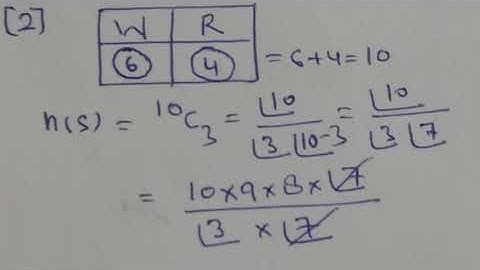 [2]
W R
6 4 = 6+4=10
n(s) = ¹⁰C₃ = |10 / |3 |10-3 = |10 / |3 |7
= 10×9×8×|7 / |3 × |7